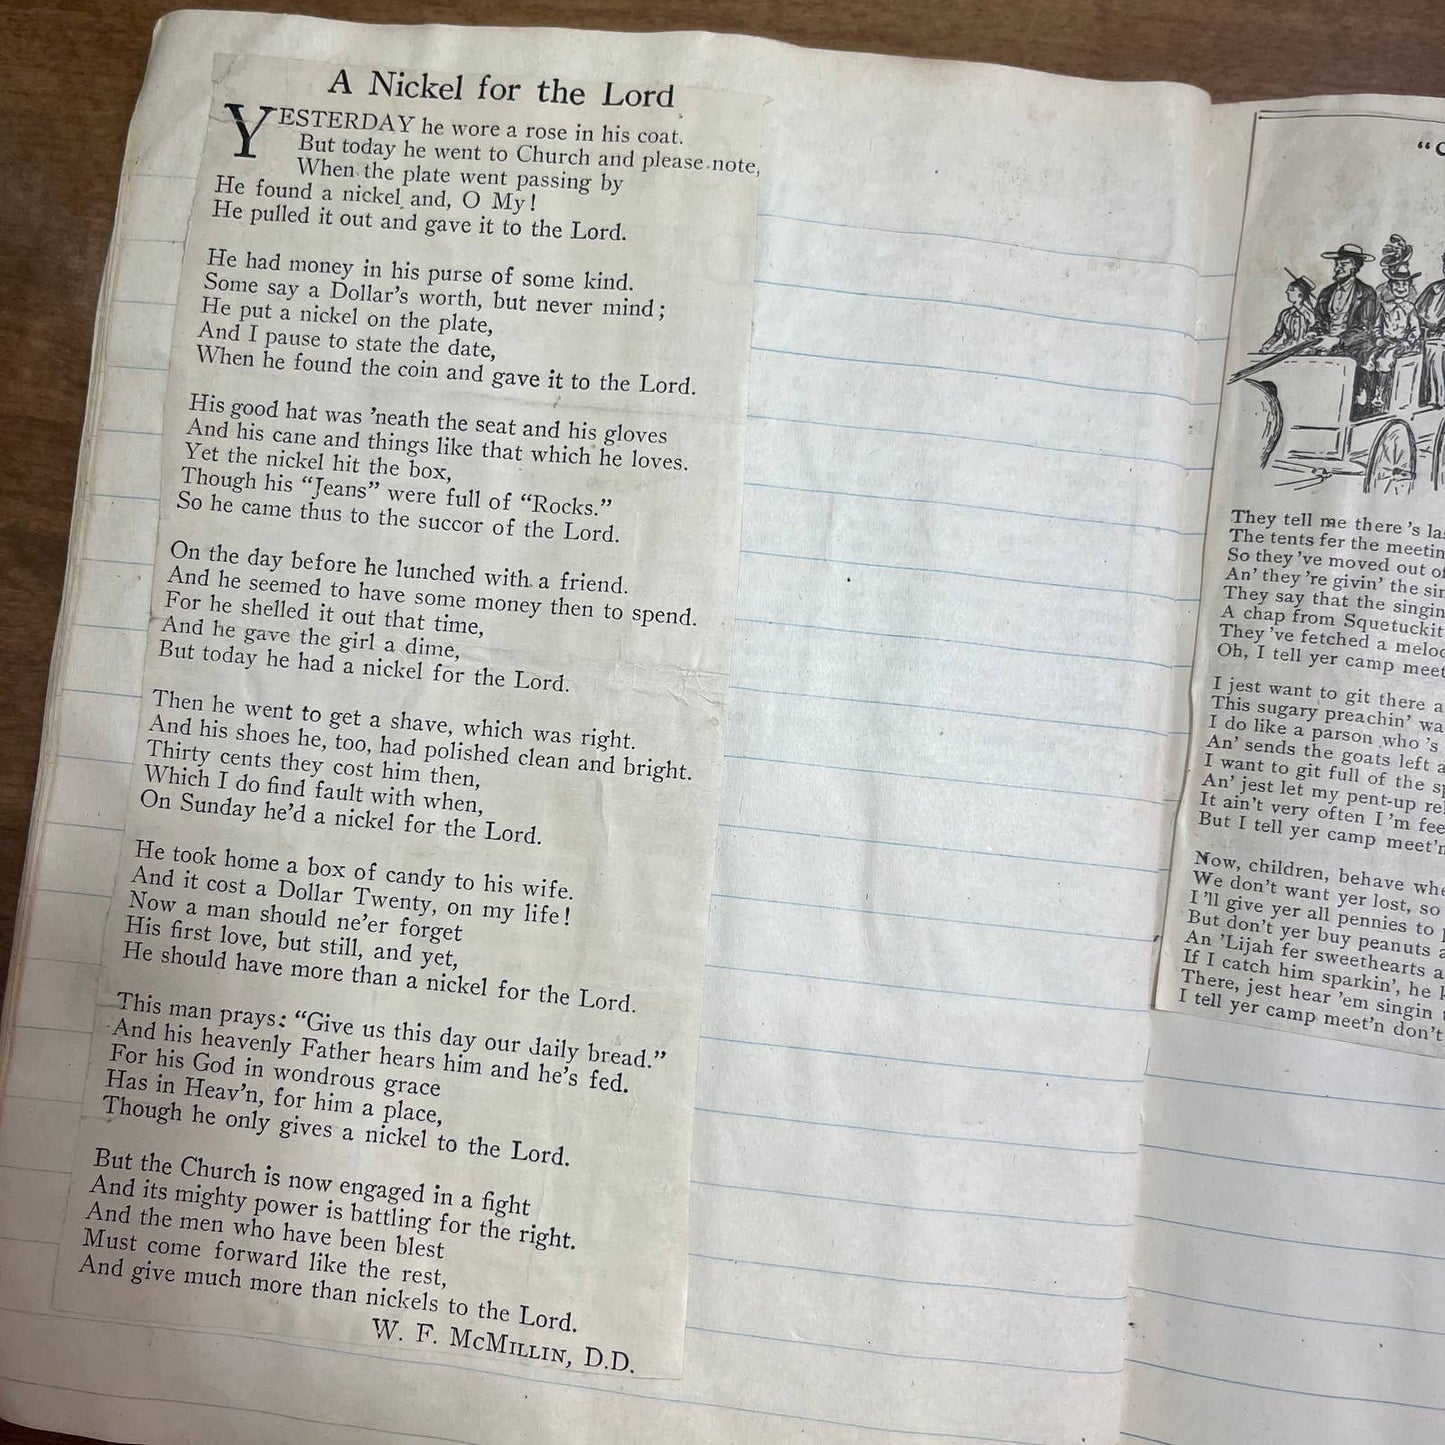 A Nickel for the Lord
YESTERDAY he wore a rose in his coat.
But today he went to Church and please note,
When the plate went passing by
He found a nickel and, O My!
He pulled it out and gave it to the Lord.
He had money in his purse of some kind.
Some say a Dollar's worth, but never mind;
He put a nickel on the plate,
And I pause to state the date,
When he found the coin and gave it to the Lord.
His good hat was 'neath the seat and his gloves
And his cane and things like that which he loves.
Yet the nickel hit the box,
Though his "Jeans" were full of "Rocks."
So he came thus to the succor of the Lord.
On the day before he lunched with a friend.
And he seemed to have some money then to spend.
For he shelled it out that time,
And he gave the girl a dime,
But today he had a nickel for the Lord.
Then he went to get a shave, which was right.
And his shoes he, too, had polished clean and bright.
Thirty cents they cost him then,
Which I do find fault with when,
On Sunday he'd a nickel for the Lord.
He took home a box of candy to his wife.
And it cost a Dollar Twenty, on my life!
Now a man should ne'er forget
His first love, but still, and yet,
He should have more than a nickel for the Lord.
This man prays: "Give us this day our daily bread."
And his heavenly Father hears him and he's fed.
For his God in wondrous grace
Has in Heav'n, for him a place,
Though he only gives a nickel to the Lord.
But the Church is now engaged in a fight
And its mighty power is battling for the right.
And the men who have been blest
Must come forward like the rest,
And give much more than nickels to the Lord.
W. F. McMillin, D.D.
They tell me there's
The tents fer the
So they've moved out
An' they're givin' the
They say that the singin
A chap from Squetuckit
They've fetched a
Oh, I tell yer camp
I jest want to git there
This sugary preachin'
I do like a parson who's
An' sends the goats left
I want to git full of the
An' jest let my pent-up
It ain't very often I'm
But I tell yer camp meet'n
Now, children, behave
We don't want yer lost, so
I'll give yer all pennies to
But don't yer buy peanuts
An 'Lijah fer sweethearts
If I catch him sparkin', he
There, jest hear 'em singin
I tell yer camp meet'n don't